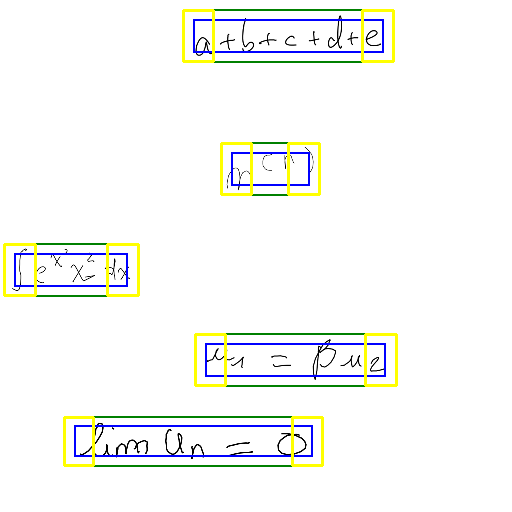 a+b+c+d+e
p^(n)
∫e^x³ x² dx
u₁ = βu₂
lim Uₙ = 0